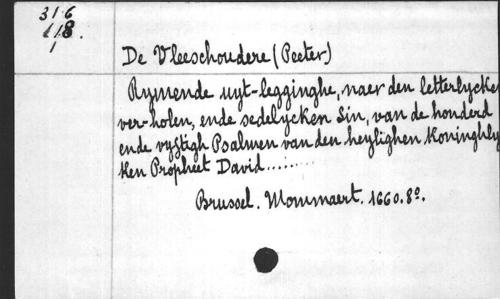 316
118.
1
De Vleeschoudere (Peeter)
Rymende uyt-legginghe, naer den letterlycke
ver-holen, ende sedelycken sin, van de honderd
ende vyftigh Psalmen van den heylighen Koninghly
ken Propheet David......
Brussel. Mommaert. 1660. 8º.